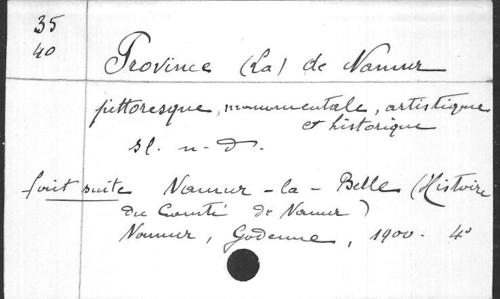 35
40
Province (La) de Namur
pittoresque, monumentale, artistique
et historique
sl. n-d.
fait suite Namur-la-Belle (Histoire
du Comté de Namur)
Namur, Godenne, 1900. 4°